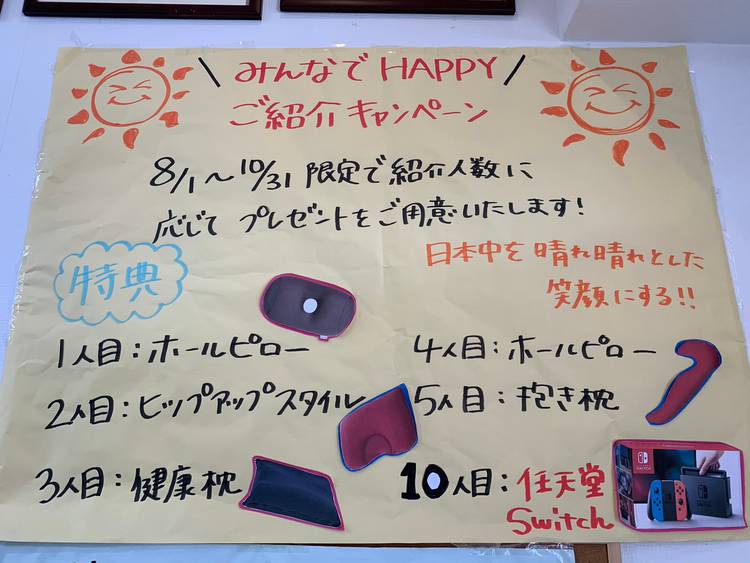 みんなで HAPPY
ご紹介キャンペーン
8/1〜10/31 限定で紹介人数に
応じて プレゼントをご用意いたします!
日本中を晴れ晴れとした
笑顔にする!!
特典
1人目:ホールピロー
2人目:ヒップアップスタイル
3人目:健康枕
4人目:ホールピロー
5人目:抱き枕
10人目:任天堂
Switch